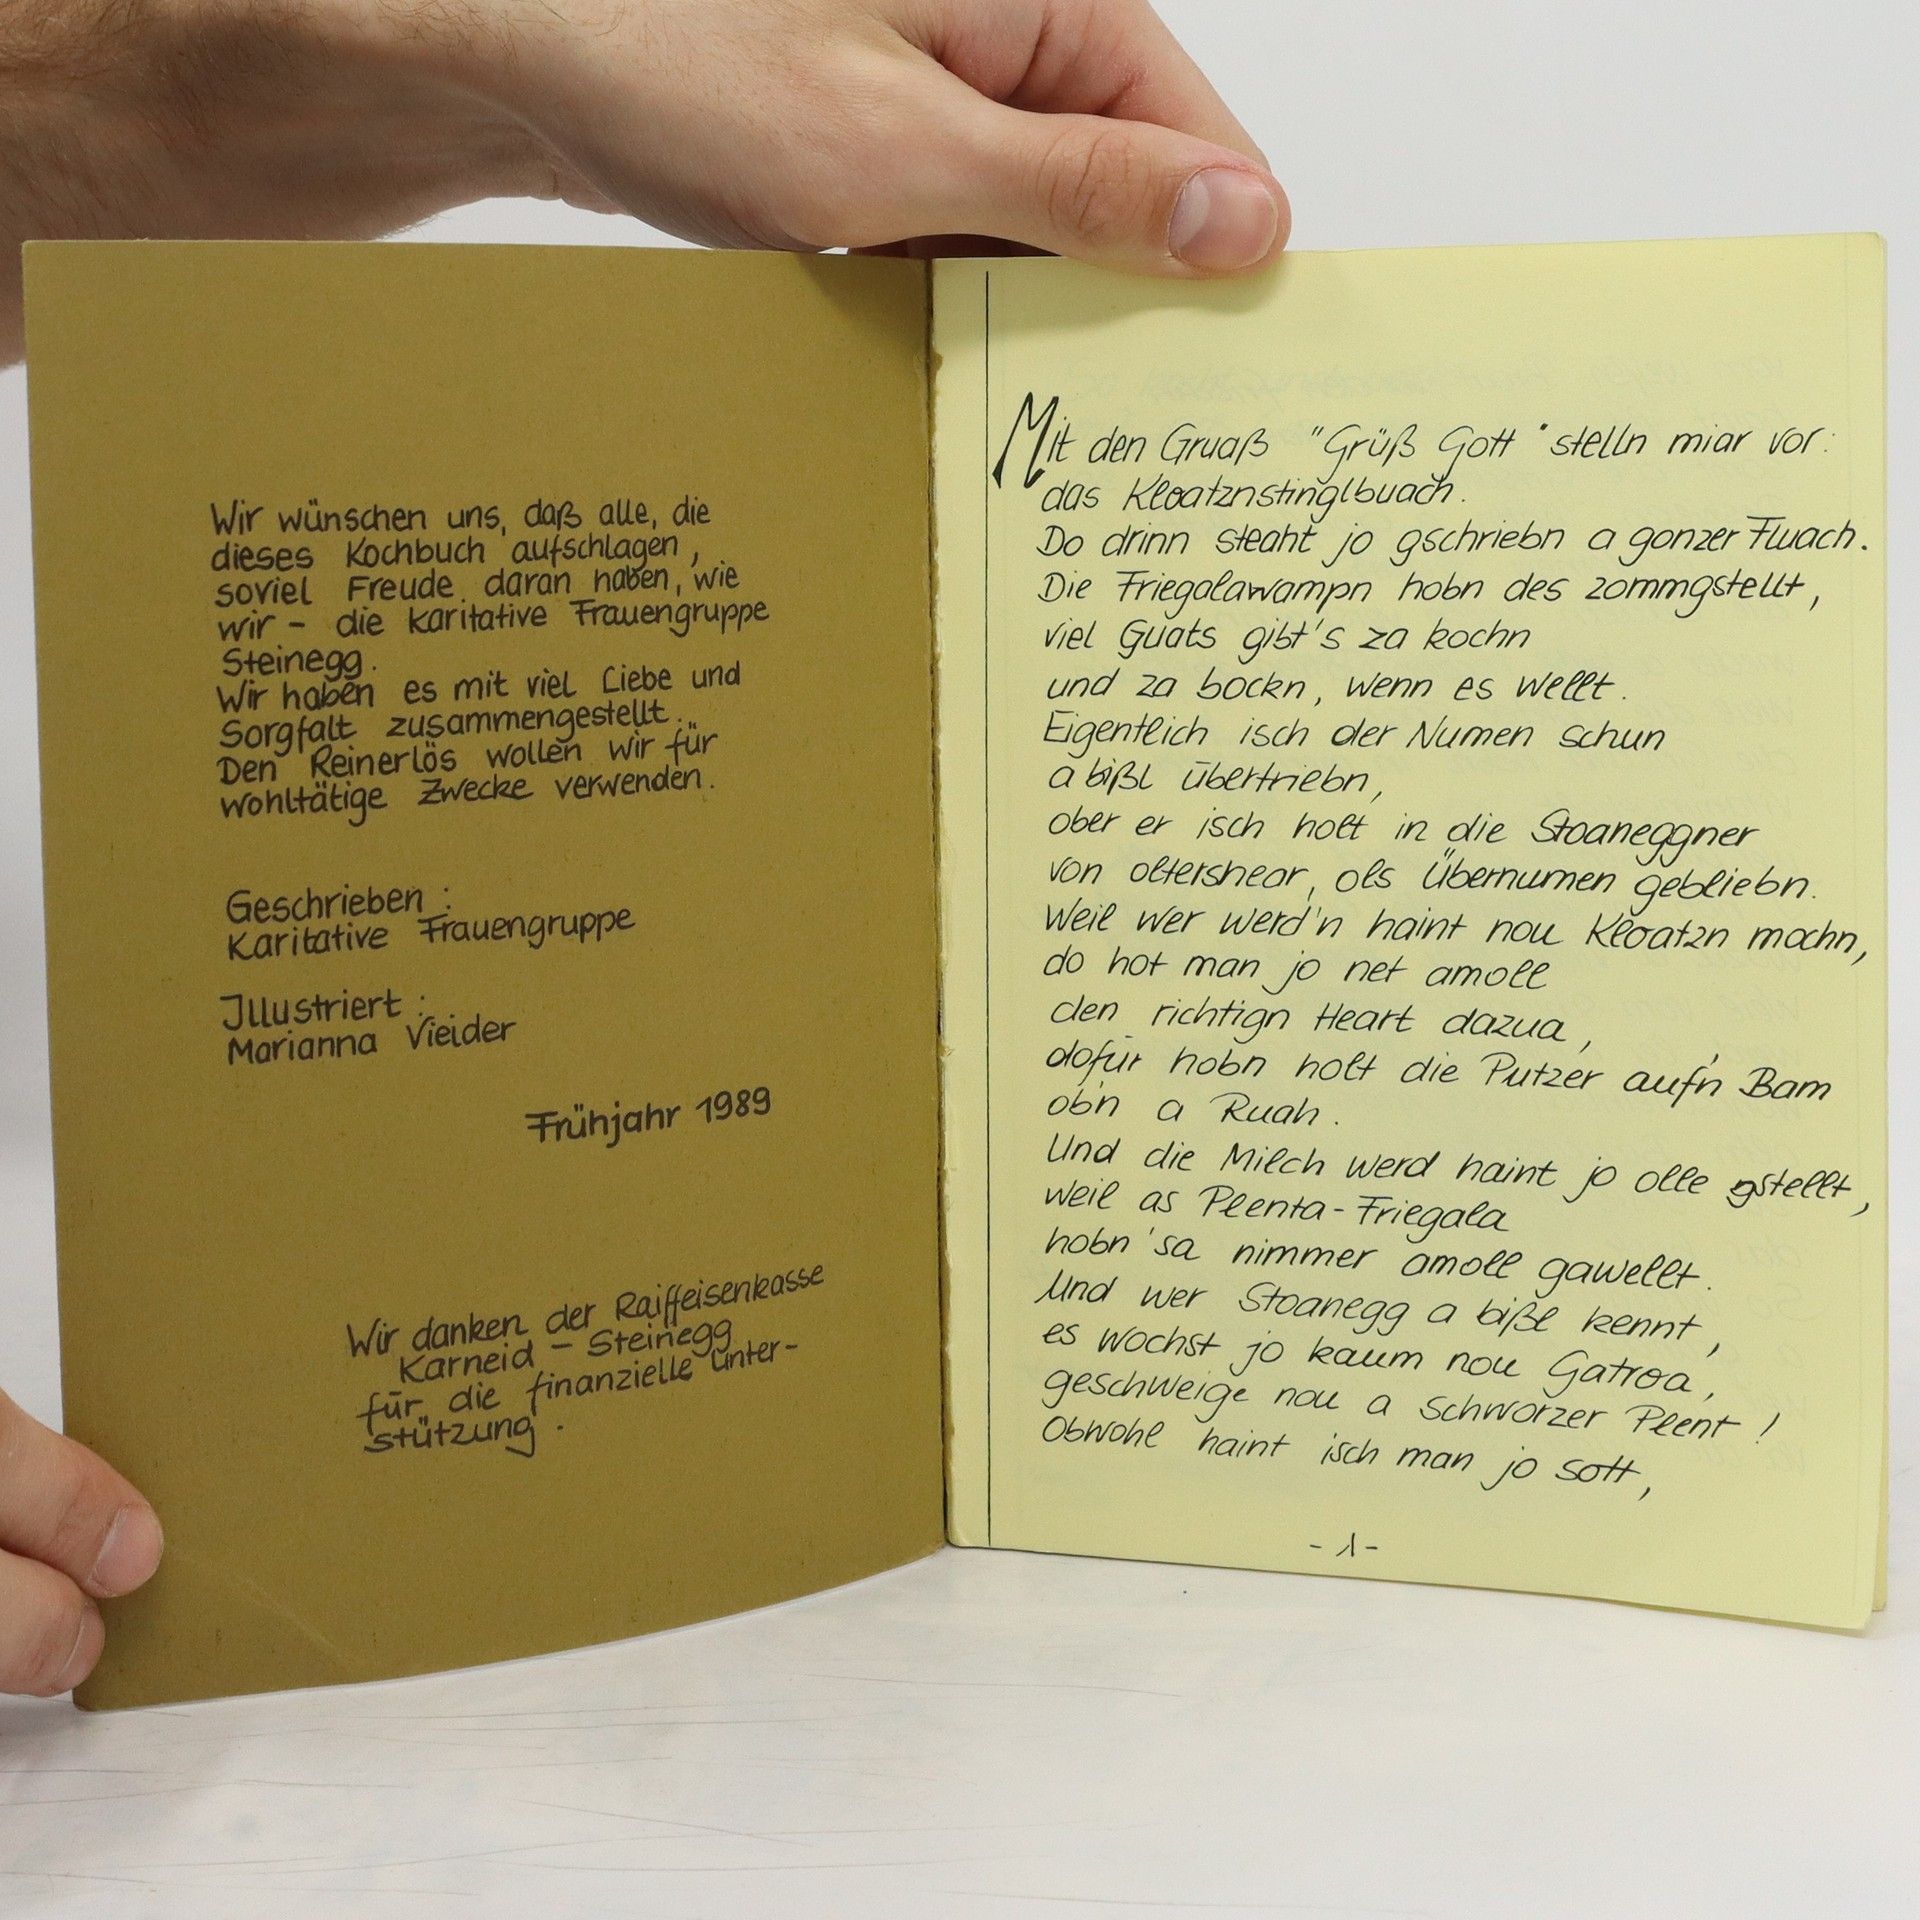 Wir wünschen uns, daß alle, die
dieses Kochbuch aufschlagen,
soviel Freude daran haben, wie
wir - die karitative Frauengruppe
Steinegg.
Wir haben es mit viel Liebe und
Sorgfalt zusammengestellt.
Den Reinerlös wollen wir für
wohltätige Zwecke verwenden.
Geschrieben :
Karitative Frauengruppe
Illustriert :
Marianna Vieider
Frühjahr 1989
Wir danken der Raiffeisenkasse
Karneid - Steinegg
für die finanzielle Unter-
stützung.
Mit den Gruaß "Grüß Gott" stelln miar vor:
das Kloatznstinglbuach.
Do drinn steaht jo gschriebn a gonzer Fluach.
Die Friegalawampn hobn des zommgstellt,
viel Guats gibt's za kochn
und za bockn, wenn es wellt.
Eigentlich isch der Numen schun
a bißl übertriebn,
ober er isch holt in die Stoaneggner
von oltershear, ols Übernumen gebliebn.
Weil wer werd'n haint nou Kloatzn mochn,
do hot man jo net amoll
den richtign Heart dazua,
dofür hobn holt die Putzer auf'n Bam
ob'n a Ruah.
Und die Milch werd haint jo olle gstellt,
weil as Plenta-Friegala
hobn'sa nimmer amoll gawellt.
Und wer Stoanegg a bißl kennt,
es wochst jo kaum nou Gatroa,
geschweige nou a schworzer Plent!
Obwohl haint isch man jo sott,
- 1 -